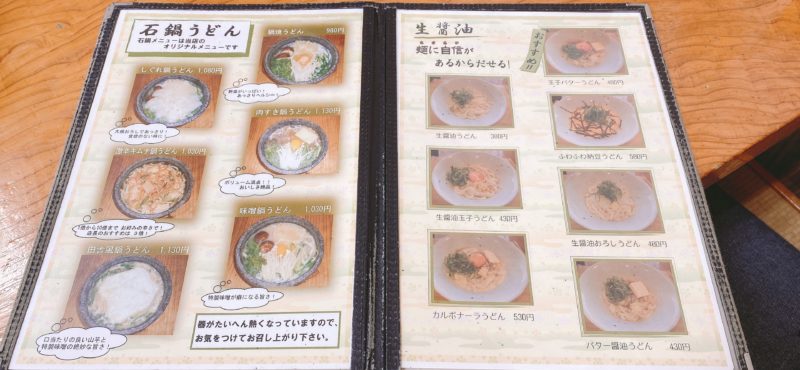 石鍋うどん
石鍋メニューは当店の
オリジナルメニューです
鍋焼うどん 980円
野菜がいっぱい!
あっさりヘルシー!
しぐれ鍋うどん 1,080円
大根おろしであっさり!
食欲のない時に!
肉すき鍋うどん 1,130円
ボリューム満点!!
おいしさ絶品!
激辛キムチ鍋うどん 1,030円
1倍から10倍まで お好みの辛さで!
店長のおすすめは 3倍!
味噌鍋うどん 1,030円
特製味噌が癖になる旨さ!
田舎風鍋うどん 1,130円
口当たりの良い山芋と
特製味噌の絶妙な旨さ!
器がたいへん熱くなっていますので、
お気をつけてお召し上がり下さい。
生醤油
麺に自信が
あるからだせる!
おすすめ!!
玉子バターうどん 480円
生醤油うどん 380円
ふわふわ納豆うどん 580円
生醤油玉子うどん 430円
生醤油おろしうどん 480円
カルボナーラうどん 530円
バター醤油うどん 430円